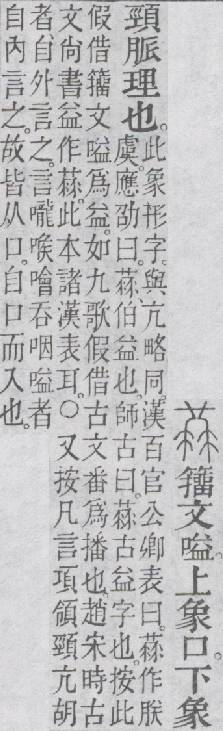 籒文嗌。上象口。下象
頸脈理也。
此象形字。與亢略同。漢百官公卿表曰。作朕
虞。應劭曰。伯益也。師古曰。古益字也。按此
假借籒文嗌爲益。如九歌假借古文番爲播也。趙宋時古
文尚書益作。此本諸漢表耳。○又按凡言項領頸亢胡
者、自外言之。言嚨喉噲吞咽嗌者
自內言之。故皆从口。自口而入也。